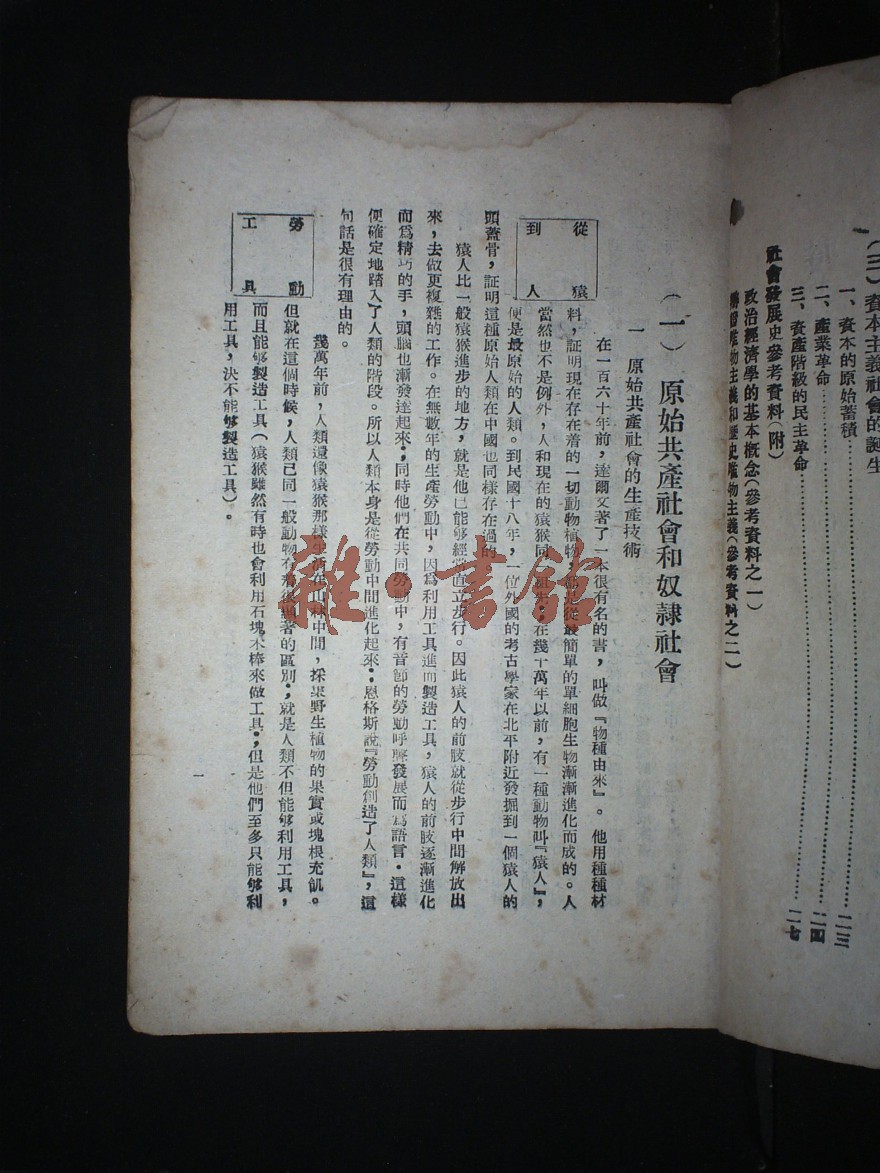 (三)資本主義社會的誕生
一、資本的原始蓄積……二三
二、產業革命……二四
三、資產階級的民主革命……二七
社會發展史參考資料(附)
政治經濟學的基本概念(參考資料之一)
辯證唯物主義和歷史唯物主義(參考資料之二)
(一)原始共產社會和奴隸社會
一 原始共產社會的生產技術
從猿到人
在一百六十年前,達爾文著了一本很有名的書,叫做『物種由來』。他用種種材
料,証明現在存在着的一切動物植物,都是從最簡單的單細胞生物漸漸進化而成的。人
當然也不是例外,人和現在的猿猴同一祖先;在幾十萬年以前,有一種動物叫『猿人』,
便是最原始的人類。到民國十八年,一位外國的考古學家在北平附近發掘到一個猿人的
頭蓋骨,証明這種原始人類在中國也同樣存在過的。
猿人比一般猿猴進步的地方,就是他已能够經常直立步行。因此猿人的前肢就從步行中間解放出
來,去做更複雜的工作。在無數年的生產勞動中,因爲利用工具進而製造工具,猿人的前肢逐漸進化
而爲精巧的手,頭腦也漸發達起來;同時他們在共同勞動中,有音節的勞動呼聲發展而爲語言。這樣
便確定地踏入了人類的階段。所以人類本身是從勞動中間進化起來;恩格斯說『勞動創造了人類』,這
句話是很有理由的。
勞動工具
幾萬年前,人類還像猿猴那樣生活在山林中間,採集野生植物的果實或塊根充飢。
但就在這個時候,人類已同一般動物有着很顯著的區別;就是人類不但能够利用工具,
而且能够製造工具(猿猴雖然有時也會利用石塊木棒來做工具;但是他們至多只能够利
用工具,決不能够製造工具)。
一
雜·書館